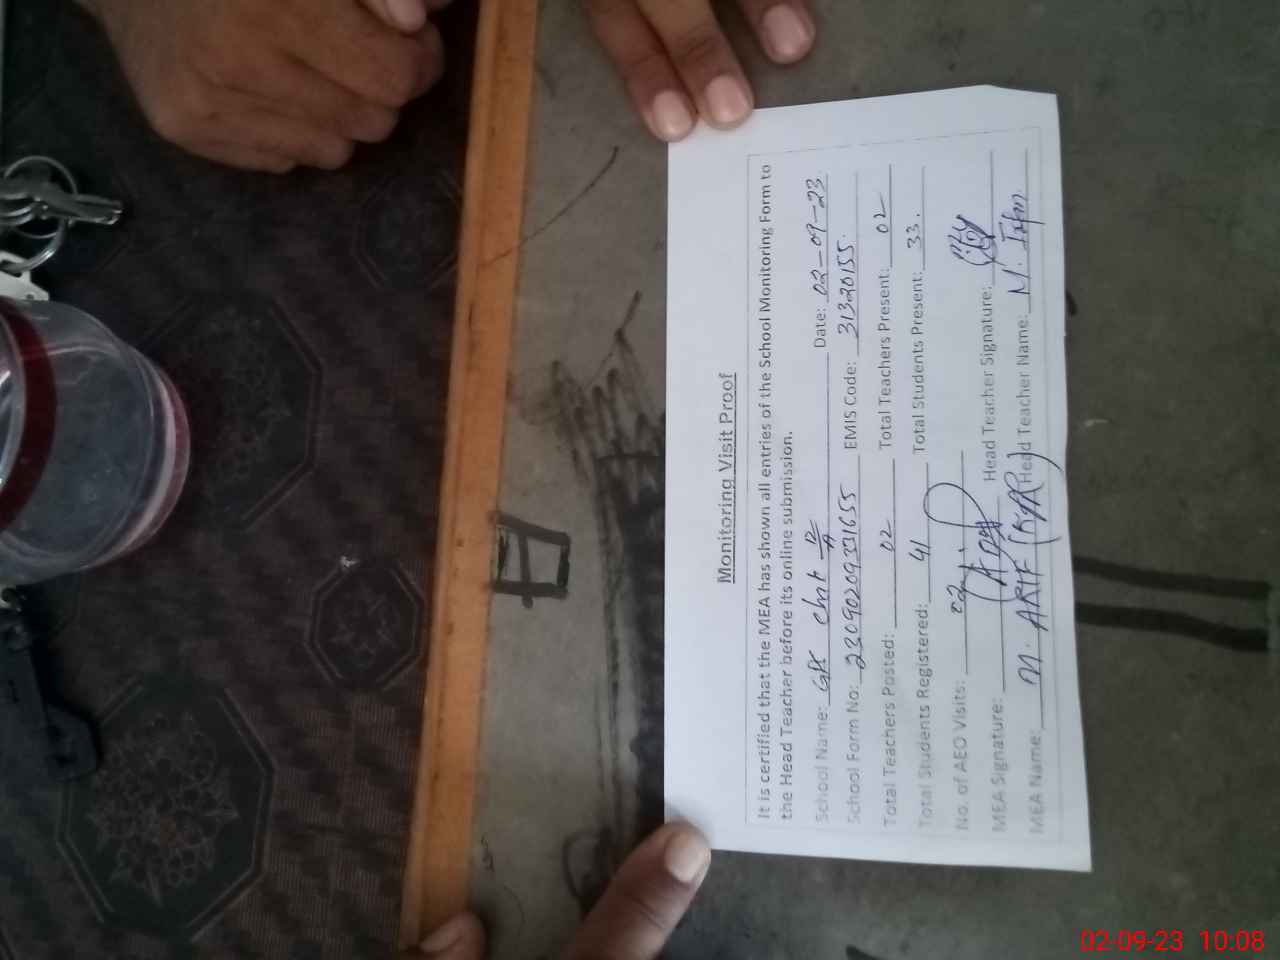 Monitoring Visit Proof
It is certified that the MEA has shown all entries of the School Monitoring Form to
the Head Teacher before its online submission.
School Name: GPS Date: 02-09-23
School Form No: 2309020931655 EMIS Code: 31320155
Total Teachers Posted: 02 Total Teachers Present: 02
Total Students Registered: 41 Total Students Present: 33
No. of AEO Visits: 02
MEA Signature: Head Teacher Signature:
MEA Name: M. ARIF Head Teacher Name: M. Irfan
02-09-23 10:08